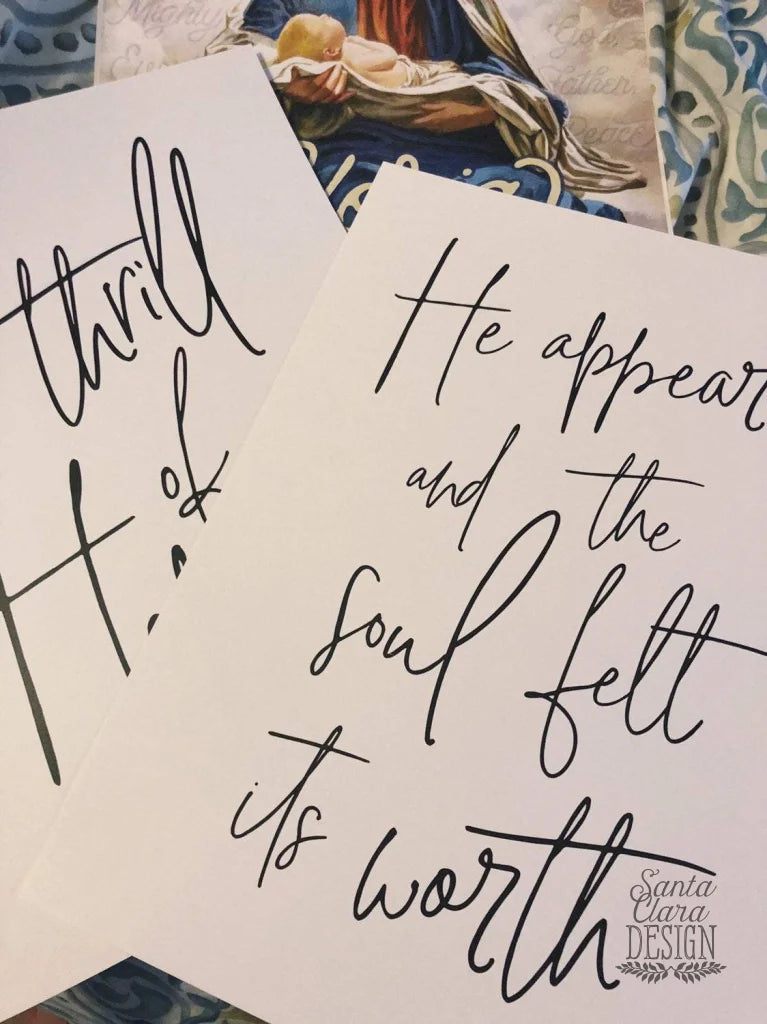 Mighty
God
Father
Peace
thrill
of
He appear
and the
soul felt
its worth
Santa
Clara
DESIGN